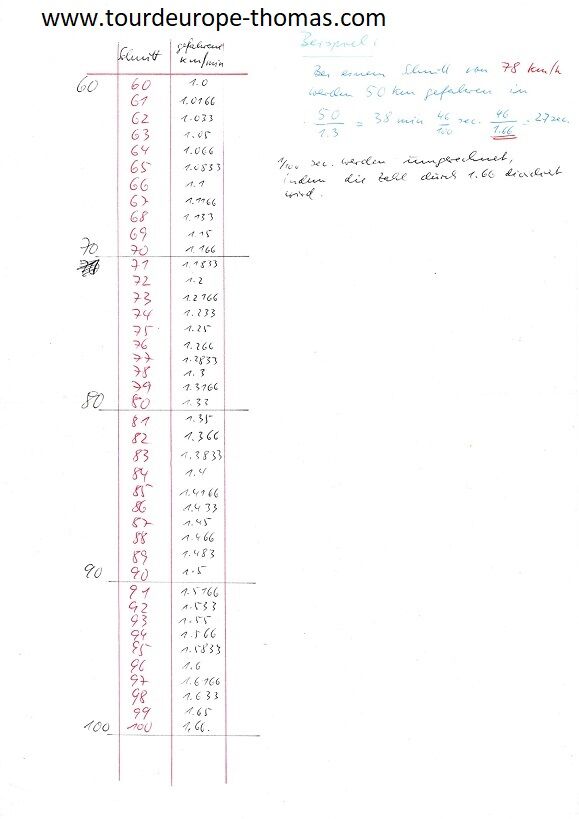 www.tourdeurope-thomas.com
Schnitt gefahrene km/min
60 60 1.0
61 1.0166
62 1.033
63 1.05
64 1.066
65 1.0833
66 1.1
67 1.1166
68 1.133
69 1.15
70 70 1.166
71 1.1833
72 1.2
73 1.2166
74 1.233
75 1.25
76 1.266
77 1.2833
78 1.3
79 1.3166
80 80 1.33
81 1.35
82 1.366
83 1.3833
84 1.4
85 1.4166
86 1.433
87 1.45
88 1.466
89 1.483
90 90 1.5
91 1.5166
92 1.533
93 1.55
94 1.566
95 1.5833
96 1.6
97 1.6166
98 1.633
99 1.65
100 100 1.66.
Beispiel:
Bei einem Schnitt von 78 km/h
werden 50 km gefahren in
50/1.3 = 38 min 46/100 sec. 46/1.66 = 27 sec.
1/100 sec. werden umgerechnet,
indem die Zahl durch 1.66 dividiert
wird.